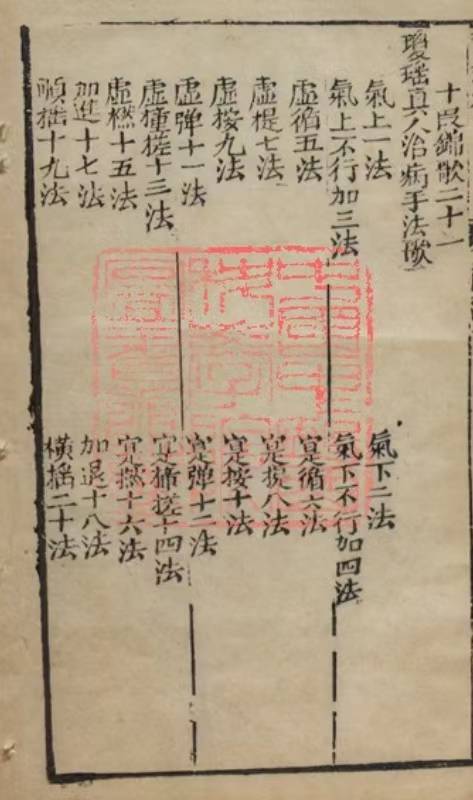 十段錦歌二十一
瓊瑶真人治病手法歌
氣上一法
氣下二法
氣上不行加三法
氣下不行加四法
虛循五法
寔循六法
虛提七法
寔提八法
虛按九法
寔按十法
虛弹十一法
寔弹十二法
虛搓十三法
寔搓十四法
虛撚十五法
寔撚十六法
加進十七法
加退十八法
順揺十九法
橫揺二十法